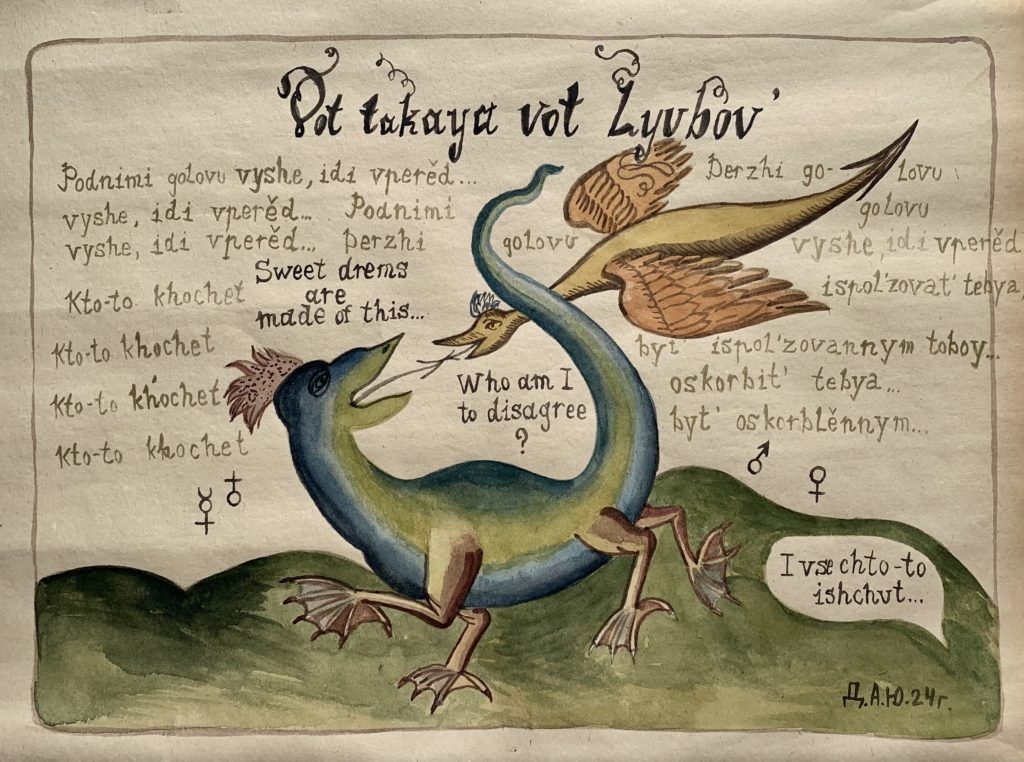 Vot takaya vot Lyubov'
Podnimi golovu vyshe, idi vperëd... Derzhi go- lovu
vyshe, idi vperëd... Podnimi golovu
vyshe, idi vperëd... Derzhi golovu vyshe, idi vperëd
Sweet drems
are
made of this...
Kto-to khochet ispol'zovat' tebya
Kto-to khochet byt' ispol'zovannym toboy...
Kto-to khochet oskorbit' tebya...
Kto-to khochet byt' oskorblënnym...
Who am I
to disagree
?
☿ ♁ ♂ ♀
I vse chto-to
ishchut...
Д.А.Ю.24г.